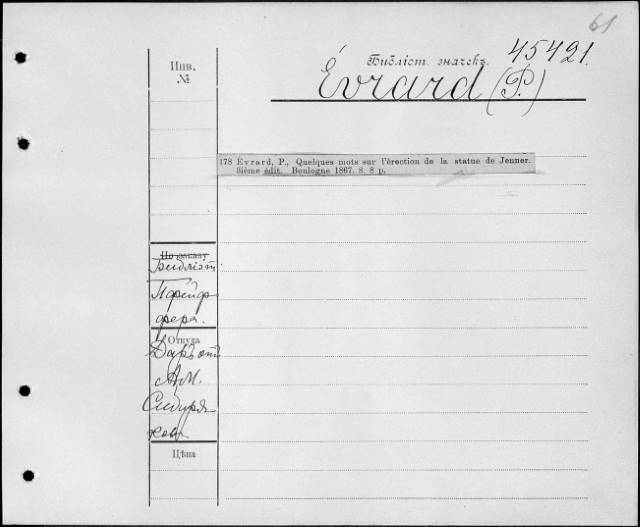 61
Инв.
№
Библіот. значекъ.
45421.
Évrard (P.)
178 Évrard, P., Quelques mots sur l'érection de la statue de Jenner.
3ième édit. Boulogne 1867. 8. 8 p.
По заказу
Библіот.
Пфейф
фера.
Откуда
Даръ отъ
А.М.
Сибиря
кова
Цѣна